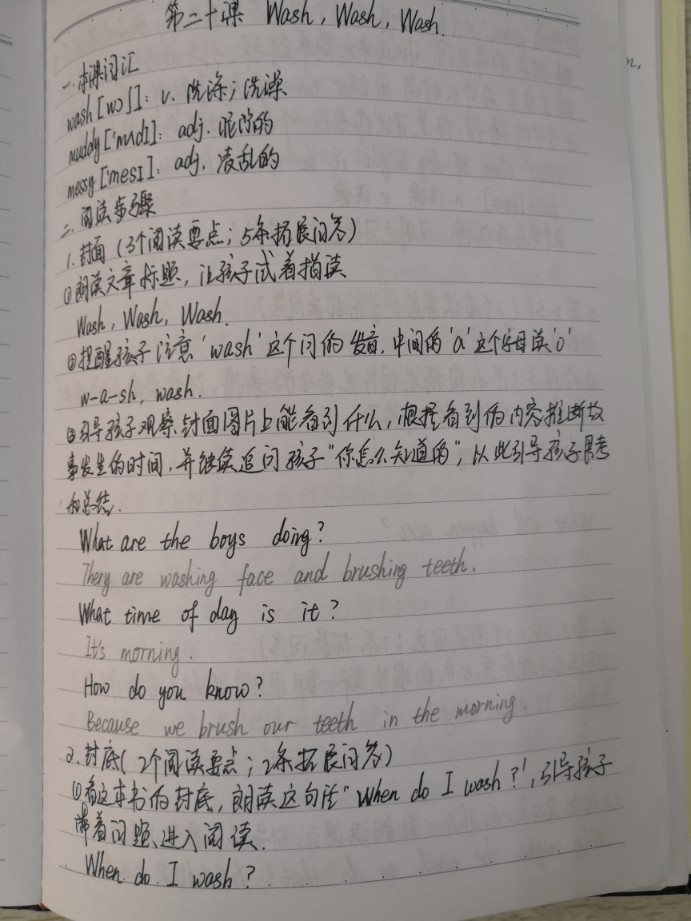 第二十课 Wash, Wash, Wash.
一.本课词汇
wash [wɔʃ]: v. 洗涤; 洗澡
muddy ['mʌdɪ]: adj. 泥泞的
messy ['mesɪ]: adj. 凌乱的
二.阅读步骤
1.封面 (3个阅读要点; 5条拓展问答)
①朗读文章标题, 让孩子试着指读
Wash, Wash, Wash.
②提醒孩子注意'wash'这个词的发音,中间的'a'这个字母读'o'
w-a-sh, wash.
③引导孩子观察封面图片上能看到什么,根据看到的内容推断故
事发生的时间,并继续追问孩子"你怎么知道的",以此引导孩子思考
和总结.
What are the boys doing?
They are washing face and brushing teeth.
What time of day is it?
It's morning.
How do you know?
Because we brush our teeth in the morning.
2.封底( 2个阅读要点; 2条拓展问答)
①看这本书的封底, 朗读这句话"When do I wash?",引导孩子
带着问题,进入阅读.
When do I wash?